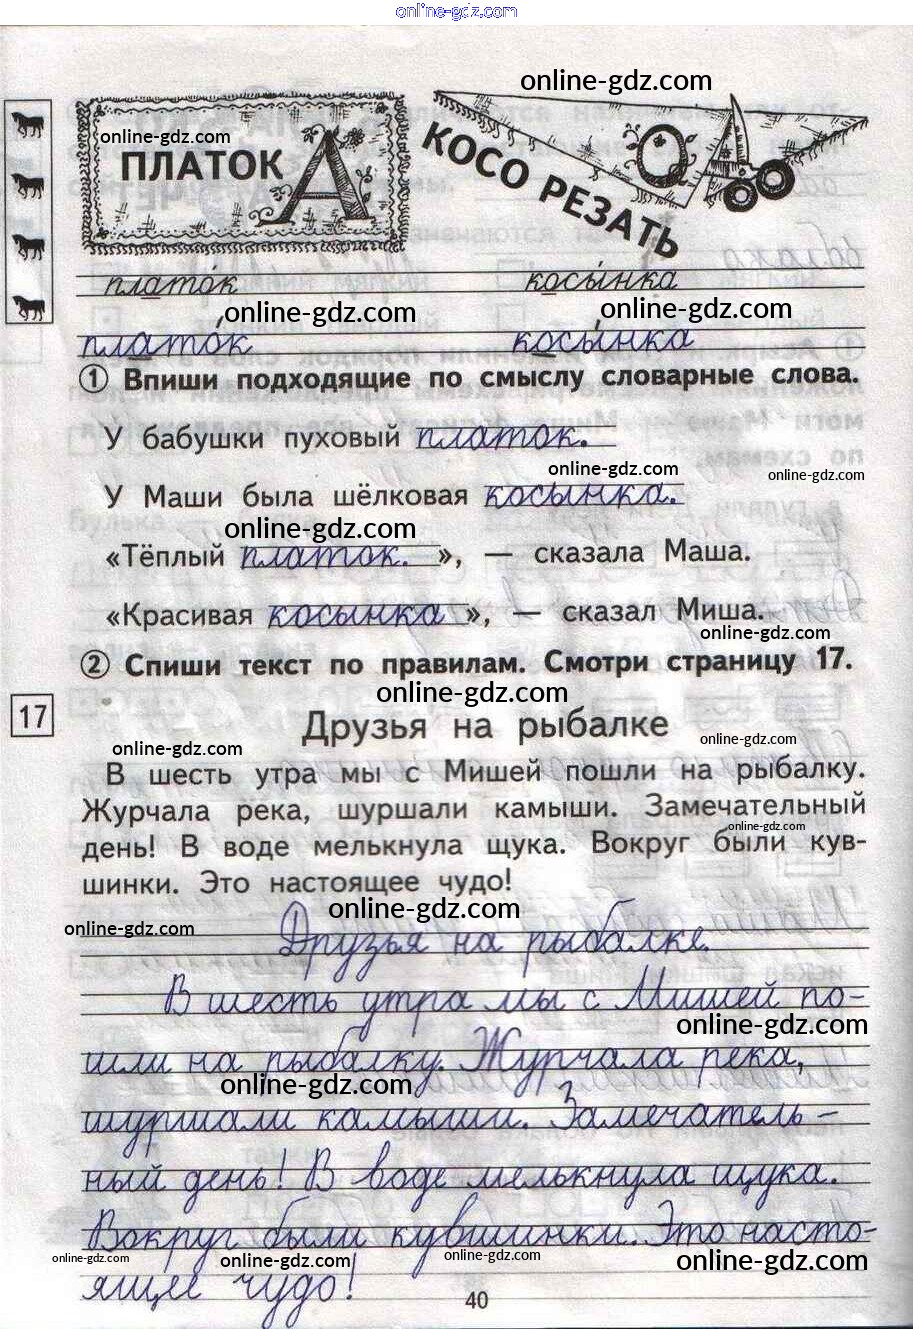 online-gdz.com
online-gdz.com
online-gdz.com
ПЛАТОК А
КОСО РЕЗАТЬ
плато́к косы́нка
online-gdz.com online-gdz.com
плато́к косы́нка
① Впиши подходящие по смыслу словарные слова.
У бабушки пуховый платок.
online-gdz.com online-gdz.com
У Маши была шёлковая косынка.
online-gdz.com
«Тёплый платок. », — сказала Маша.
«Красивая косынка », — сказал Миша.
online-gdz.com
② Спиши текст по правилам. Смотри страницу 17.
online-gdz.com
17
Друзья на рыбалке
online-gdz.com online-gdz.com
В шесть утра мы с Мишей пошли на рыбалку.
Журчала река, шуршали камыши. Замечательный
online-gdz.com
день! В воде мелькнула щука. Вокруг были кув-
шинки. Это настоящее чудо!
online-gdz.com
online-gdz.com
Друзья на рыбалке.
В шесть утра мы с Мишей по-
online-gdz.com
шли на рыбалку. Журчала река,
online-gdz.com
шуршали камыши. Замечатель-
ный день! В воде мелькнула щука.
Вокруг были кувшинки. Это насто-
online-gdz.com online-gdz.com online-gdz.com online-gdz.com
ящее чудо!
40